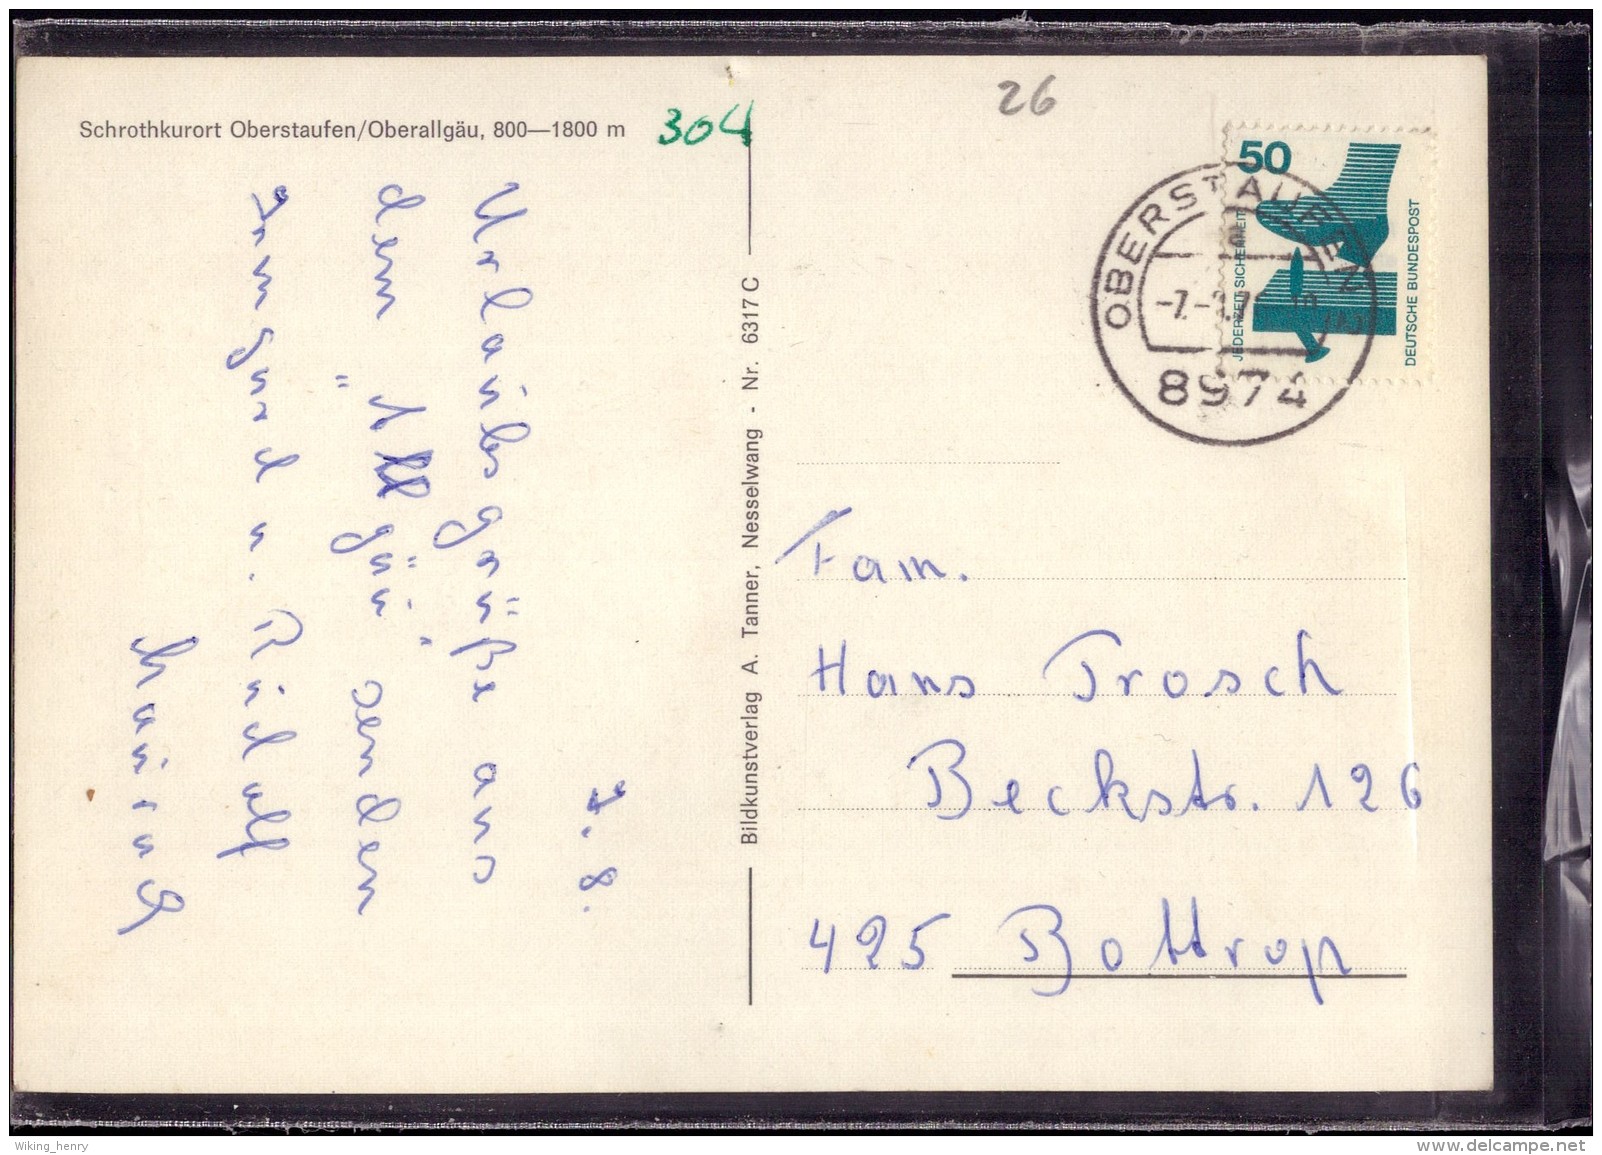 Schrothkurort Oberstaufen/Oberallgäu, 800—1800 m
304
26
50
JEDERZEIT SICHERHEIT
DEUTSCHE BUNDESPOST
OBERSTAUFEN
8974
Bildkunstverlag A. Tanner, Nesselwang - Nr. 6317 C
7. 8.
Urlaubsgrüße aus
dem "Allgäu" senden
Irmgard u. Rudolf
Fam.
Hans Trosch
Beckstr. 126
425 Bottrop
Wiking_henry
delcampe.net